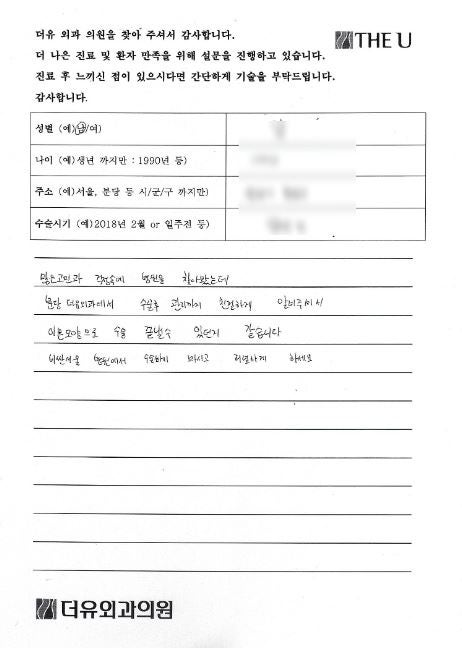 더유 외과 의원을 찾아 주셔서 감사합니다.
더 나은 진료 및 환자 만족을 위해 설문을 진행하고 있습니다.
진료 후 느끼신 점이 있으시다면 간단하게 기술을 부탁드립니다.
감사합니다.
THE U
성별 (예)남/여)
나이 (예)생년 까지만 : 1990년 등)
주소 (예)서울, 분당 등 시/군/구 까지만)
수술시기 (예)2018년 2월 or 일주전 등)
많은고민과 걱정속에 병원을 찾아왔는데
분당 더유외과에서 수술후 관리까지 친절하게 알려주셔서
이쁜모양으로 수술 끝낼수 있던거 같습니다
비싼서울 병원에서 수술하지 마시고 하세요
더유외과의원